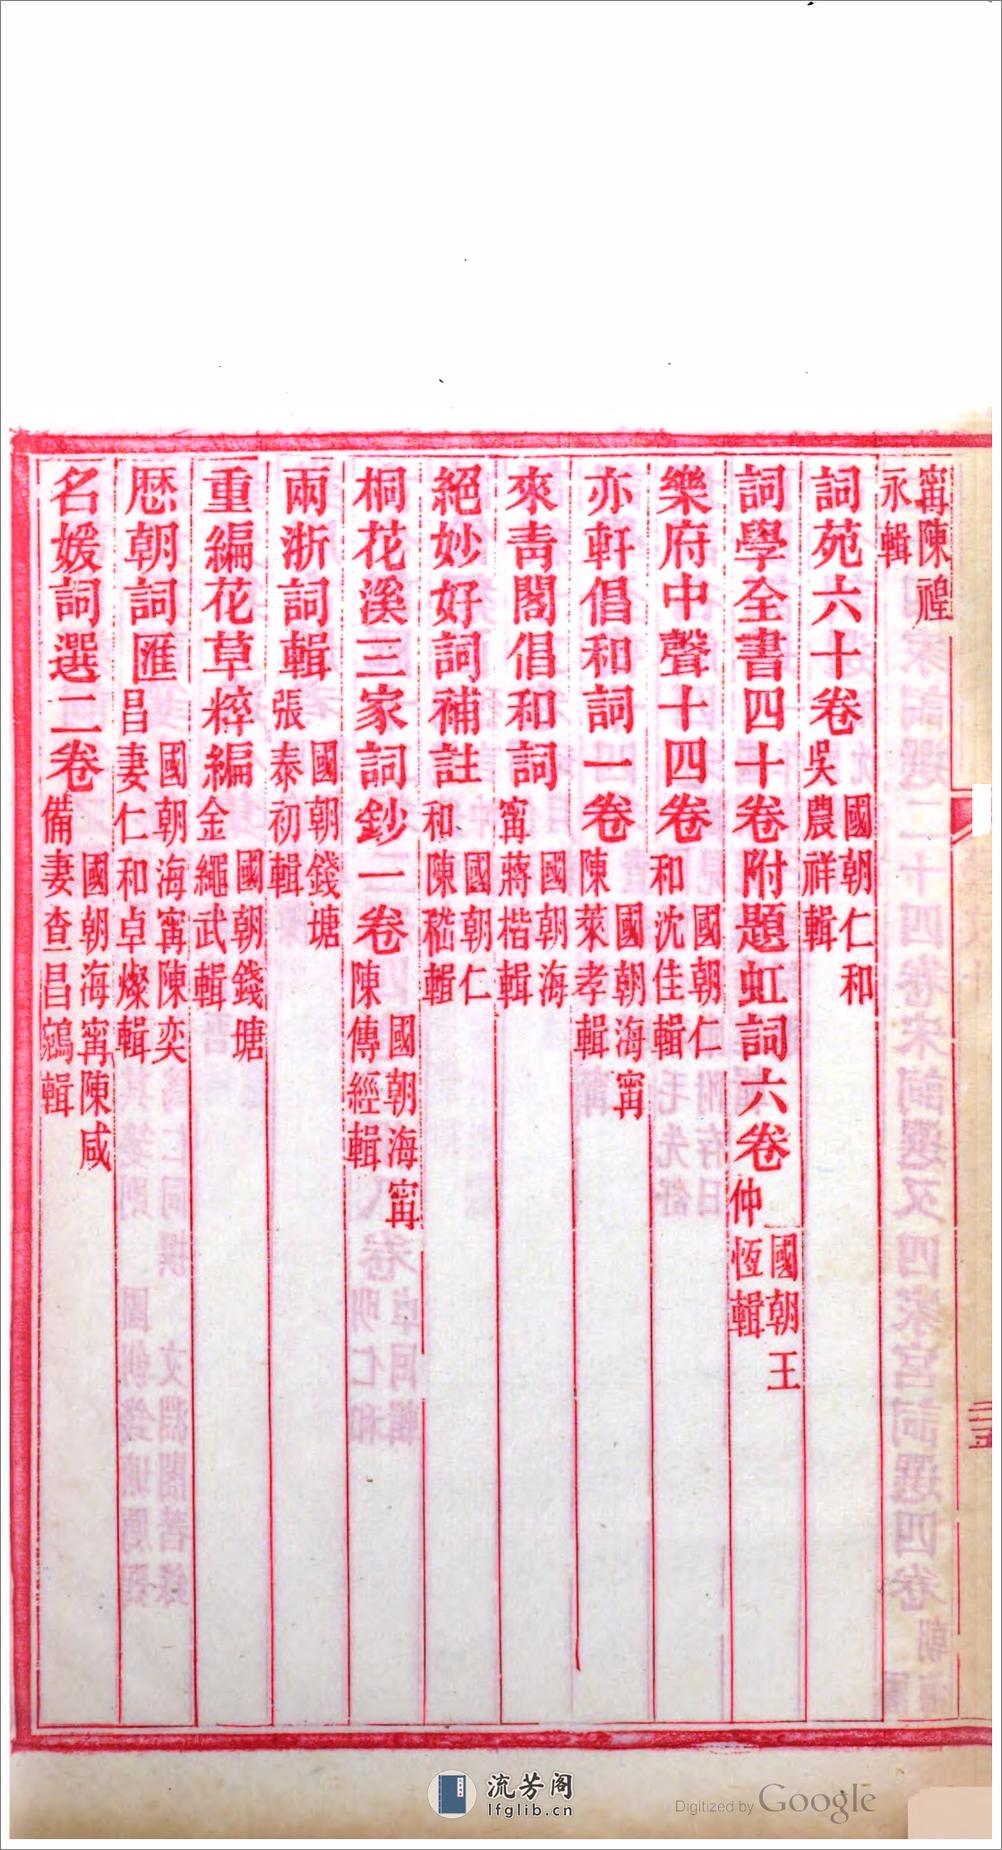 甯陳禋
永輯
詞苑六十卷 國朝仁和吳農祥輯
詞學全書四十卷附題虹詞六卷 國朝王仲恆輯
樂府中聲十四卷 國朝仁和沈佳輯
亦軒倡和詞一卷 國朝海甯陳萊孝輯
來青閣倡和詞 國朝海甯蔣楷輯
絕妙好詞補註 國朝仁和陳嵇輯
桐花溪三家詞鈔一卷 國朝海甯陳傳經輯
兩浙詞輯 國朝錢塘張泰初輯
重編花草粹編 國朝錢塘金繩武輯
歴朝詞匯 國朝海甯陳奕昌妻仁和卓燦輯
名媛詞選二卷 國朝海甯陳咸備妻查昌鵷輯
二五
流芳阁
lfglib.cn
Digitized by Google